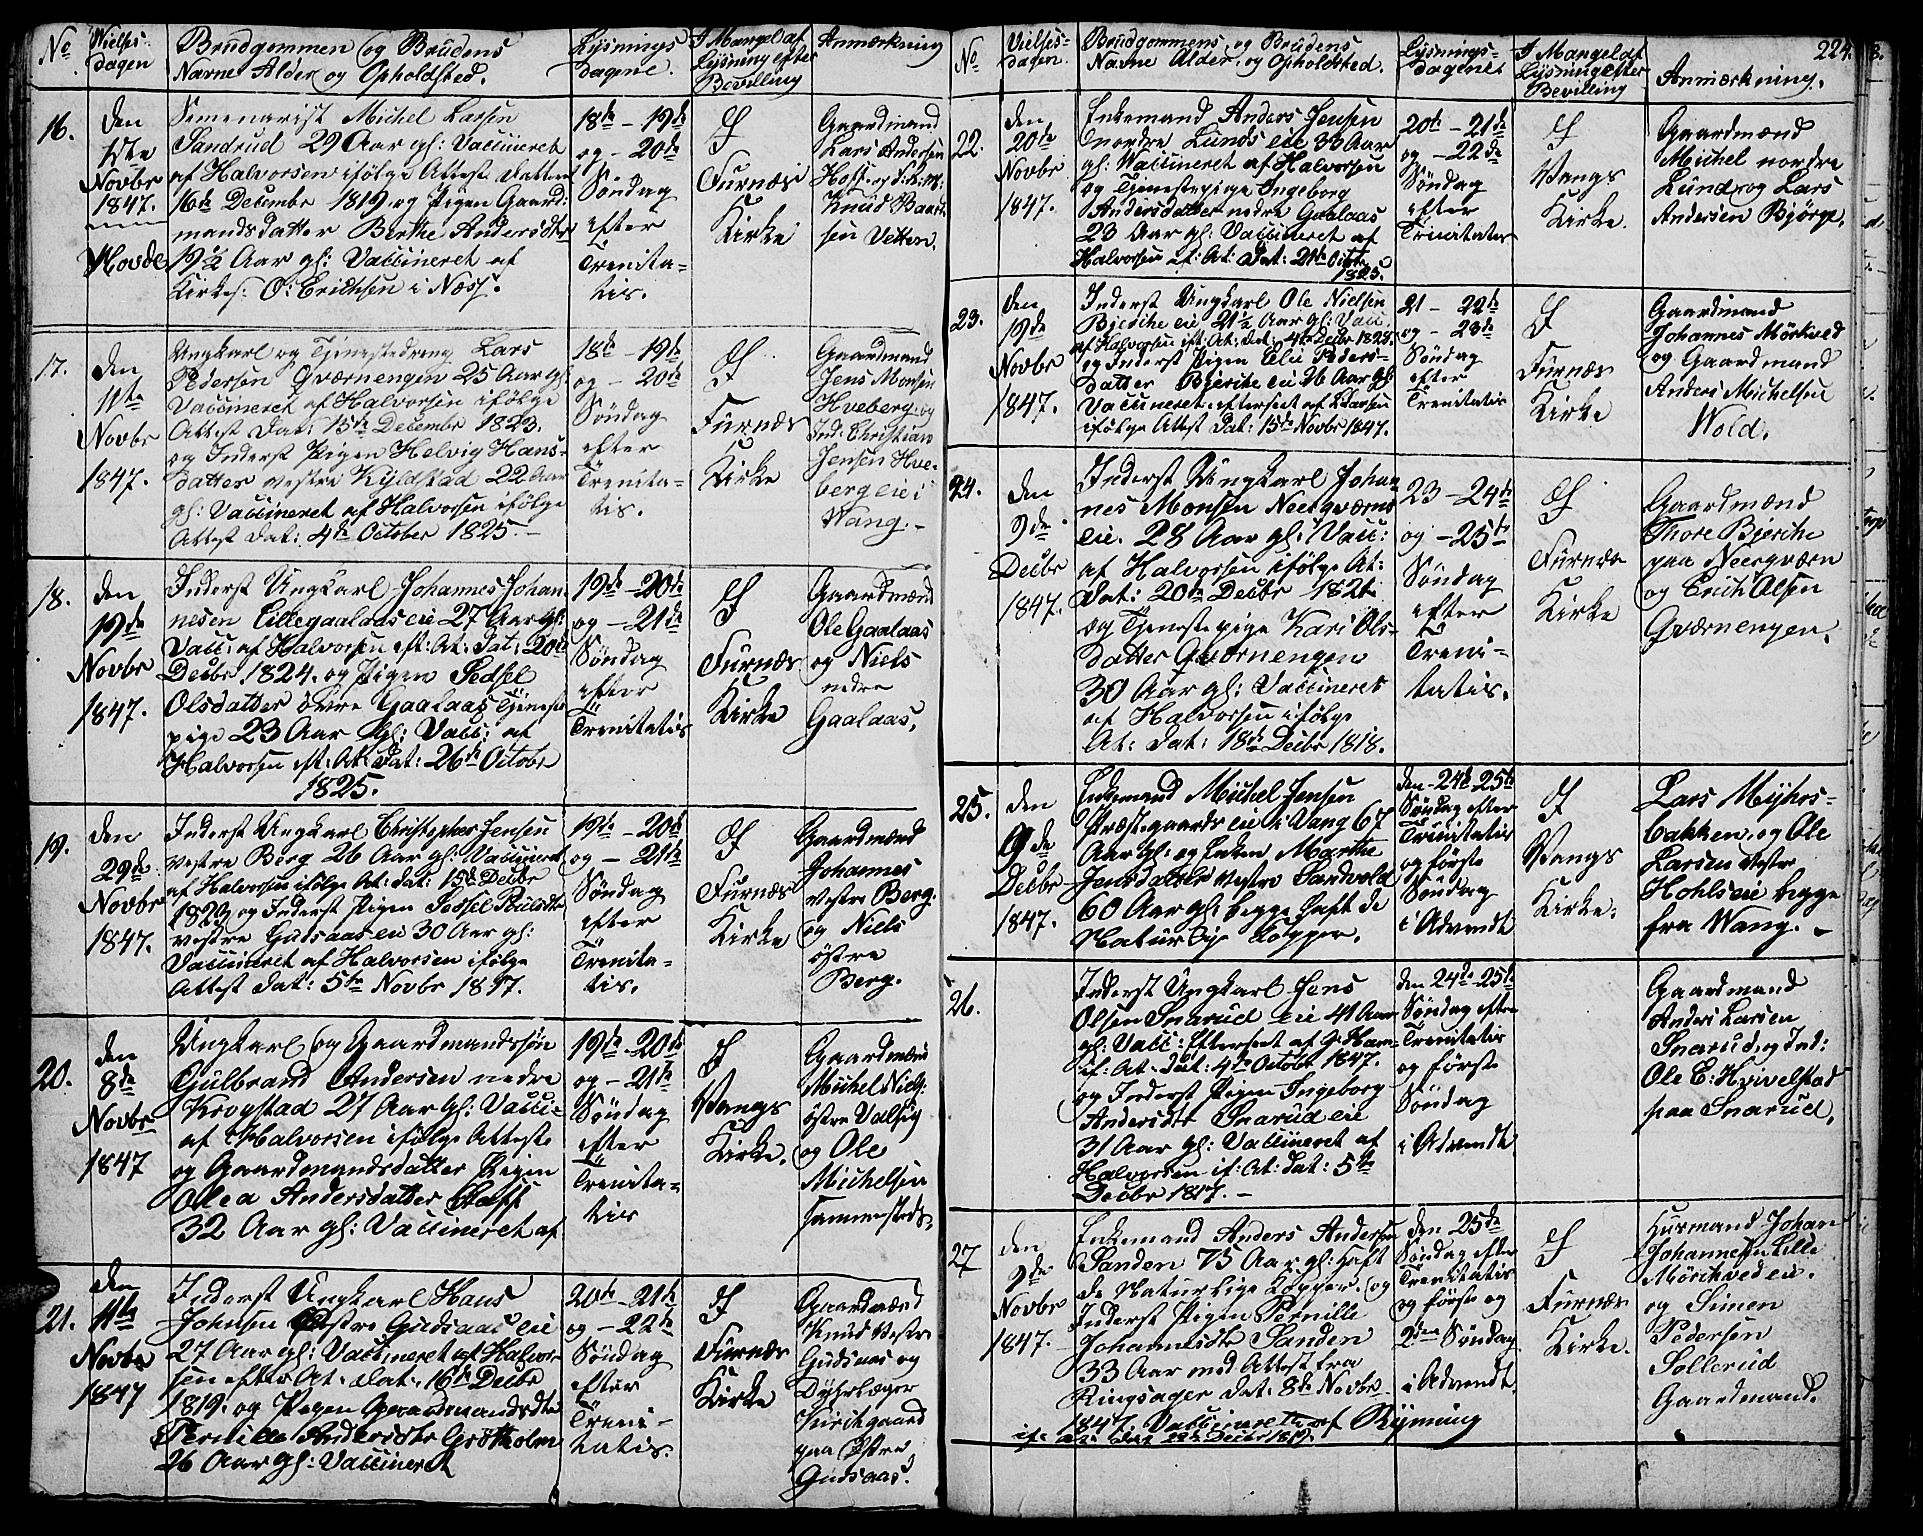 No
Vielses-
dagen
Brudgommen og Brudens
Navne Alder og Opholdsted.
Lysnings
Dagene.
I Mangel af
Lysning efter
Bevilling
Anmærkning
16.
den
1ste
Novbr
1847.
Hovde
Semenarist Michel Larsen
Sandrud 29 Aar gl: Vaccineret
af Halvorsen ifølge Attest datteret
16de Decembr 1819 og Pigen Gaard-
mandsdatter Berthe Andersdtr
19½ Aar gl: Vaccineret af
Kirkes: O: Erichsen i Næss.
18de – 19de
og – 20de
Søndag
efter
Trenita-
tis.
I
Furnæs
Kirke
Gaardmænd
Lars Andersen
Knud Baard-
sen Vetten.
17.
den
11te
Novbr
1847.
Ungkarl og Tjenestedreng Lars
Pedersen Qværnengen 25 Aar gl:
Vaccineret af Halvorsen ifølge
Attest dat: 15de Decembr 1823.
og Inderst Pigen Helvig Hans-
datter vestre Kyldstad 22 Aar
gl: Vaccineret af Halvorsen ifølge
Attest dat: 4de October 1825.–
18de – 19de
og – 20de
Søndag
efter
Trenita-
tis.
I
Furnæs
Kirke
Gaardmand
Jens Monsen
Hveberg og
Ind: Christian
Jensen Hve-
berg eie i
Wang.–
18.
den
19de
Novbr
1847.
Inderst Ungkarl Johannes Johan-
nesen Lillegaalaas eie 27 Aar gl:
Vacc: af Halvorsen eft: At: dat: 20de
Decbr 1824. og Pigen Sedsel
Olsdatter øvre Gaalaas Tjeneste-
pige 23 Aar gl: Vacc: af
Halvorsen eft: At: dat: 26de Octobr
1825.
19de – 20de
og – 21de
Søndag
efter
Trenitatis
I
Furnæs
Kirke
Gaardmænd
Ole Gaalaas
og Niels
nedre
Gaalaas.
19.
den
29de
Novbr
1847.
Inderst Ungkarl Christopher Jensen
vestre Berg 26 Aar gl: Vaccineret
af Halvorsen ifølge At: dat: 15de Decbr
1823 og Inderst Pigen Sedsel Poulsdtr
vestre Gudsaas eie 30 Aar gl:
Vaccineret af Halvorsen ifølge
Attest dat: 5te Novbr 1817.
19de – 20de
og – 21de
Søndag
efter
Trenita-
tis.
I
Furnæs
Kirke
Gaardmænd
Johannes
vestre Berg.
og Niels
østre
Berg.
20.
den
8de
Novbr
1847
Ungkarl og Gaardmandssøn
Gulbrand Andersen nedre
Krogstad 27 Aar gl: Vacci-
af Halvorsen ifølge Atteste
og Gaardmandsdatter Pigen
Olea Andersdatter
32 Aar gl: Vaccineret af
19de – 20de
og – 21de
Søndag
efter
Trenita-
tis
I
Vangs
Kirke.
Gaardmænd
Michel Niels:
østre Valseg
og Ole
Michelsen
sammesteds.
21.
den
11te
Novbr
1847
Inderst Ungkarl Hans
Johnsen Østre Gudsaas eie
27 Aar gl: Vaccineret af Halvor-
sen efter At: dat: 16de Decbr
1819. og Pigen Gaardmandsdtr
Pernille Andersdtr Grøtholm
26 Aar gl: Vaccineret
20de – 21de
og – 22de
Søndag
efter
Treni-
tatis.
I
Furnæs
Kirke
Gaardmænd
Knud Vestre
Gudsaas og
Dyhrlæger
Kirkgaard
paa Østre
Gudsaas.
224.
No
Vielses-
dagen.
Brudgommens og Brudens
Navne Alder og Opholdsted.
Lysnings-
dagene
I Mangel af
Lysning efter
Bevilling
Anmærkning.
22.
den
20de
Novbr
1847.
Enkemand Anders Jensen
nordre Lunds eie 33 Aar
gl: Vaccineret af Halvorsen
og Tjenestepige Ingeborg
Andersdatter nedre Gaalaas
23 Aar gl: Vaccineret af
Halvorsen ef: At: dat: 21de Octbr
1825.
20de – 21de
og – 22de
Søndag
efter
Trinitatis
I
Vangs
Kirke.
Gaardmænd
Michel nordre
Lund og Lars
Andersen Bjørge.
23.
den
19de
Novbr
1847.
Inderst Ungkarl Ole Nielsen
Bjerche eie 21½ Aar gl: Vacc
af Halvorsen eft: At: dat: 4de Decbr 1825.
og Inderst Pigen Elie Peders-
datter Bjerche eie 26 Aar gl:
Vaccineret efterseet af Claussen
ifølge Attest dat: 15de Novbr 1847.
21 – 22de
og – 23de
Søndag
efter
Trenitatis
I
Furnæs
Kirke
Gaardmænd
Johannes Mørkved
og Gaardmand
Anders Michelsen
Wold.
24.
den
9de
Decbr
1847.
Inderst Ungkarl Johan-
nes Monsen Neerqværns
eie. 28 Aar gl: Vacc:
af Halvorsen ifølge At:
dat: 20de Decbr 1821.
og Tjenestepige Kari Ols-
datter Qværnengen
30 Aar gl: Vaccineret
af Halvorsen ifølge
At: dat: 18de Decbr 1818.
23 – 24de
og – 25de
Søndag
efter
Treni-
tatis.
I
Furnæs
Kirke
Gaardmænd
Thore Bjerche
paa Neerqværn
og Erich Olsen
Qværnengen.
25.
den
9de
Decbr
1847.
Enkemand Michel Jensen
Præstegaards eie i Vang 67
Aar gl: og Enken Marthe
Jensdatter vestre Sardvold
60 Aar gl: begge haft de
Naturlige Kopper.
den 24de 25de
Søndag efter
Trinitatis
og første
Søndag
i Advendt
I
Vangs
Kirke.
Lars Myhrs-
bakken og Ole
Larsen vestre
Hohls eie begge
fra Wang.–
26.
Inderst Ungkarl Jens
Olsen Snarud eie 41 Aar
gl: Vacc: Efterseet af G: Ham-
if: At: dat: 4de Octobr 1847.
og Inderst Pigen Ingeborg
Andersdtr Snarud eie
31 Aar gl: Vaccineret af
Halvorsen if: At: dat: 5te
Decbr 1817.–
den 24de 25de
Søndag efter
Trenitatis
og første
Søndag
i Advendt
Gaardmand
Anders Larsen
Snarud og Ind:
Ole E: Hvivelstad
paa Snarud.
27
den
9de
Novbr
1847.
Enkemand Anders Andersen
Sanden 75 Aar gl: haft
de Naturlige Kopper. og
Inderst Pigen Pernille
Johannesdtr Sanden
33 Aar med Attest fra
Ringsager dat: 8de Novbr
1847. Vaccineret af Rymning
if: At: dat: 22de Decbr 1819.
den 25de
Søndag efter
Trenitatis
og første og
2den Søndag
i Advendt.
I
Furnæs
Kirke.
Husmand Johan
Johannessen Lille
Mörchved eie.
og Simen
Pedersen
Sollerud
Gaardmand.